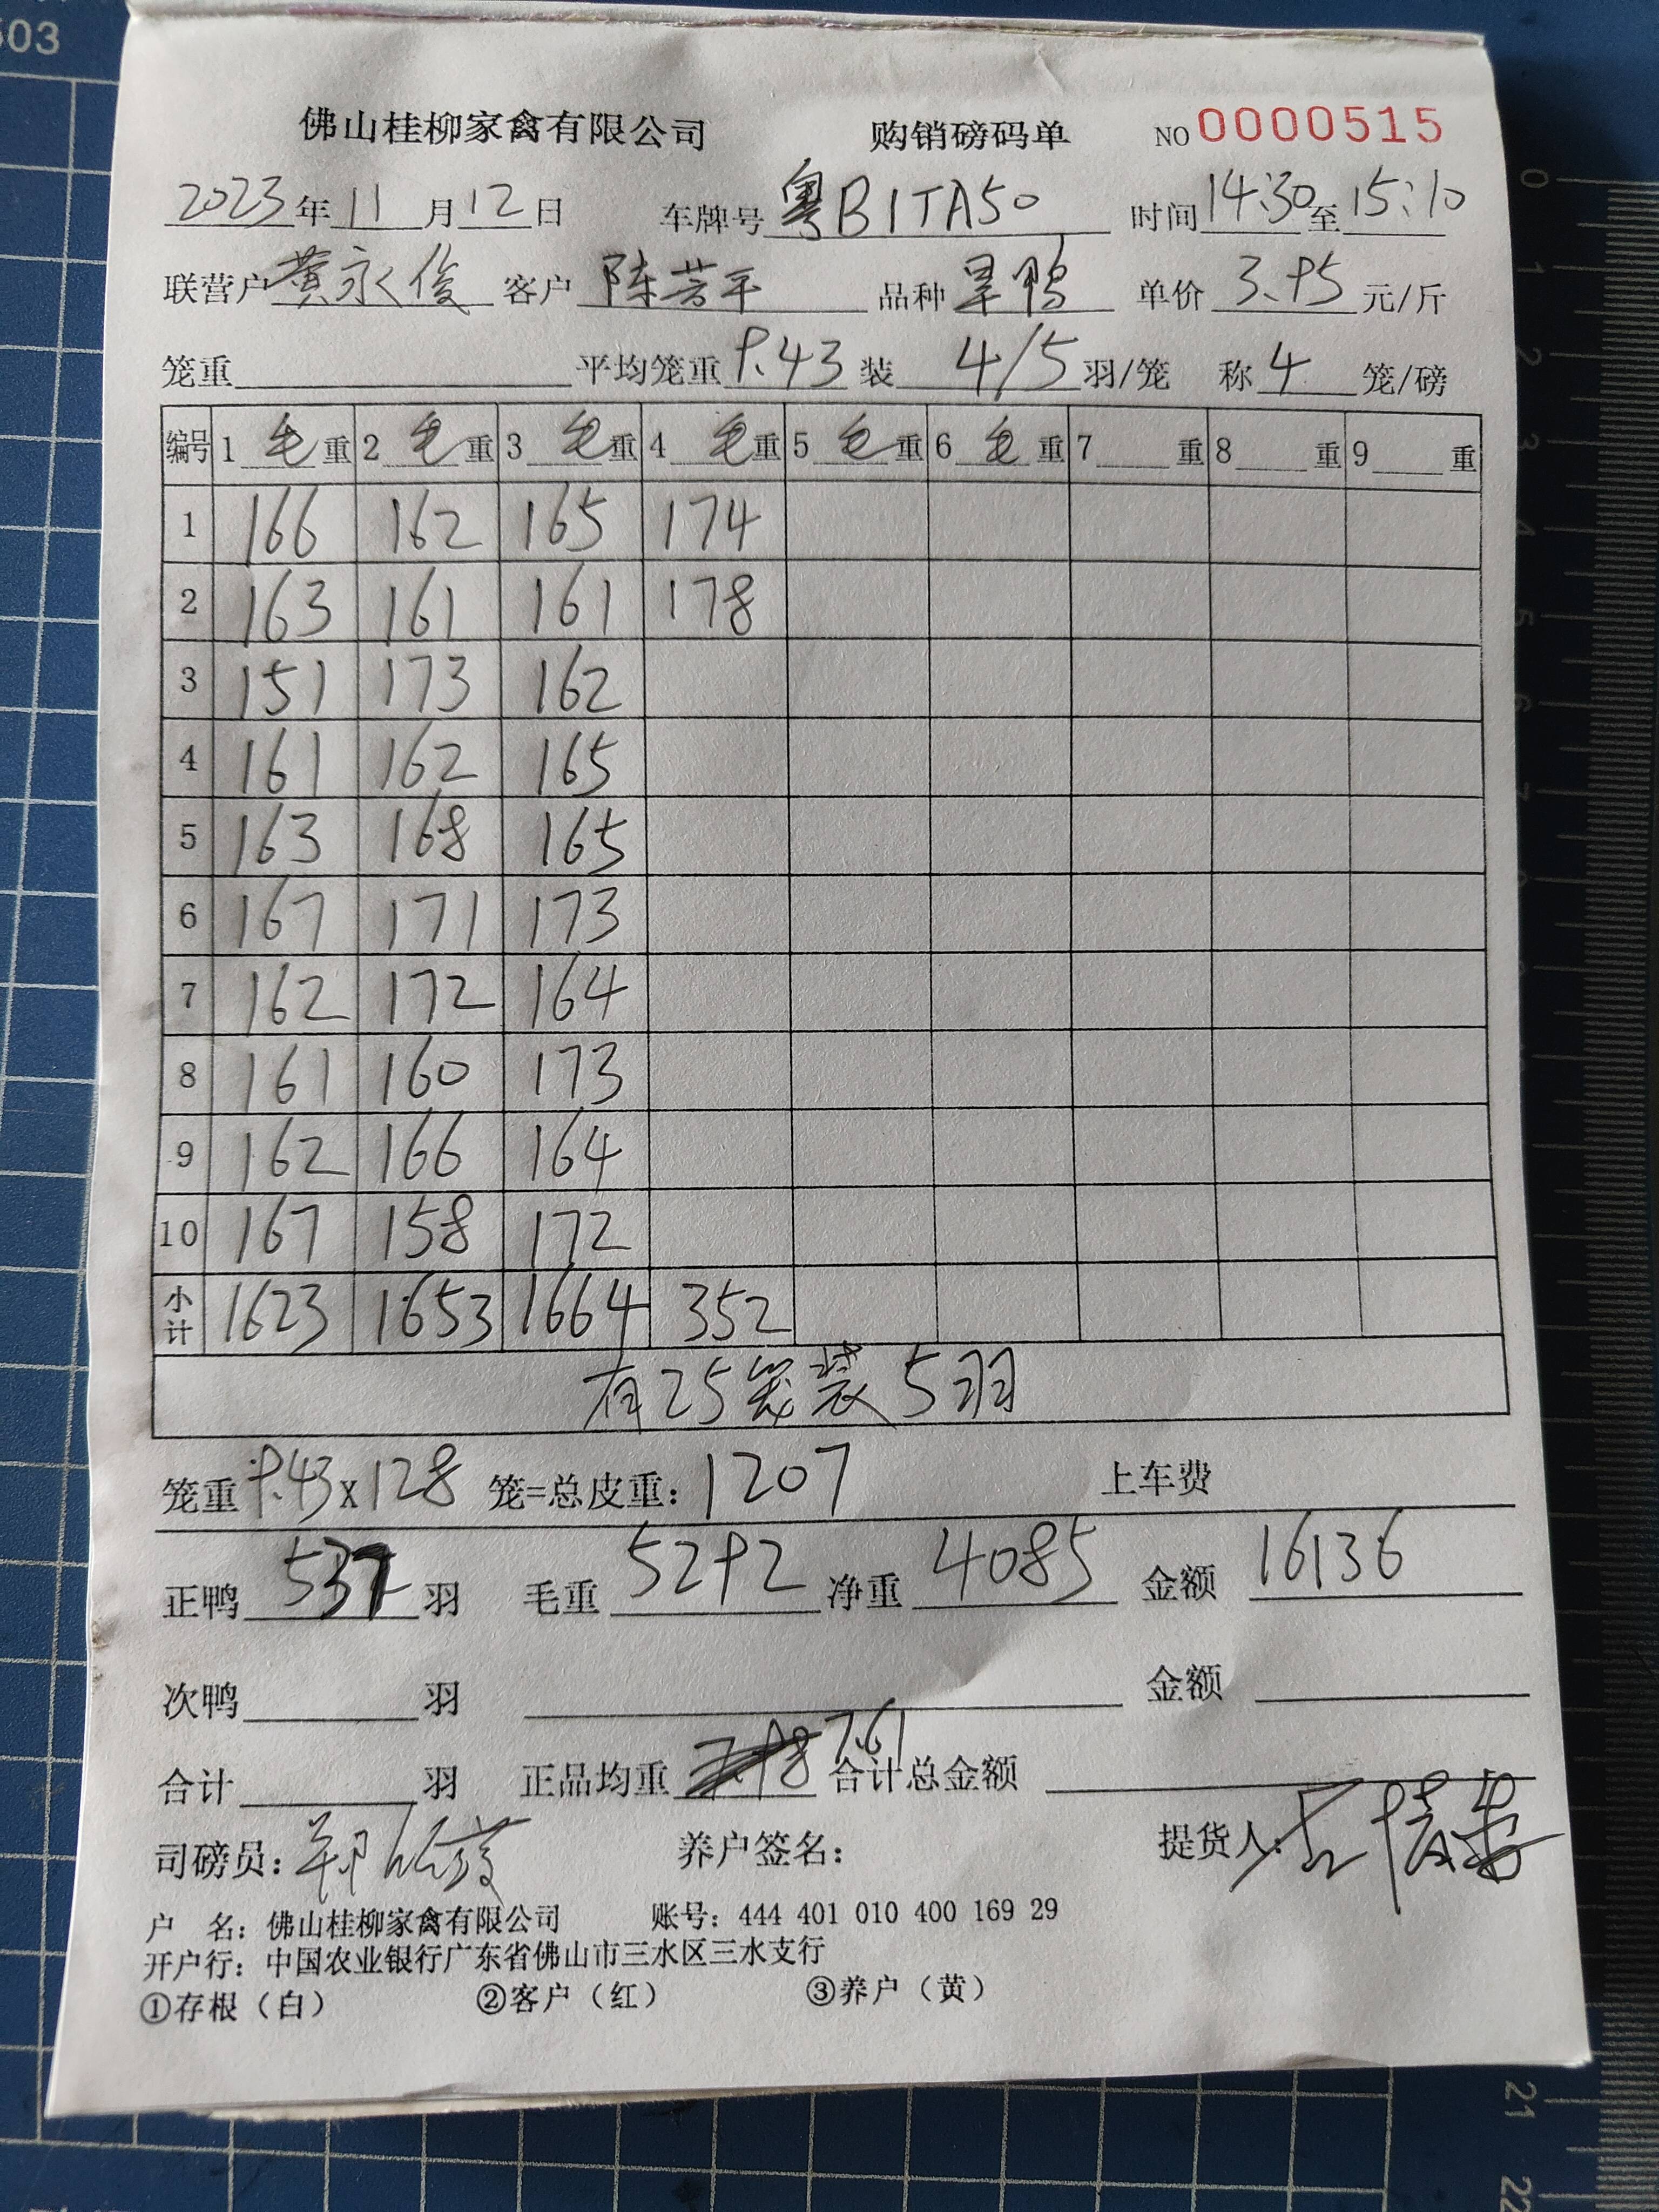 503
佛山桂柳家禽有限公司 购销磅码单 NO 0000515
2023年11月12日 车牌号 粤B1TA50 时间14:30至15:10
联营户 黄永俊 客户 陈芳平 品种 旱鸭 单价 3.95 元/斤
笼重 平均笼重 9.43 装 4/5 羽/笼 称 4 笼/磅
编号 1 毛重 2 毛重 3 毛重 4 毛重 5 毛重 6 毛重 7 重 8 重 9 重
1 166 162 165 174
2 163 161 161 178
3 151 173 162
4 161 162 165
5 163 168 165
6 167 171 173
7 162 172 164
8 161 160 173
9 162 166 164
10 167 158 172
小计 1623 1653 1664 352
有25笼装5羽
笼重 9.43 x 128 笼=总皮重: 1207 上车费
正鸭 537 羽 毛重 5292 净重 4085 金额 16136
次鸭 羽 金额
合计 羽 正品均重 7.61 合计总金额
司磅员: 养户签名: 提货人:
户 名: 佛山桂柳家禽有限公司 账号: 444 401 010 400 169 29
开户行: 中国农业银行广东省佛山市三水区三水支行
①存根（白） ②客户（红） ③养户（黄）